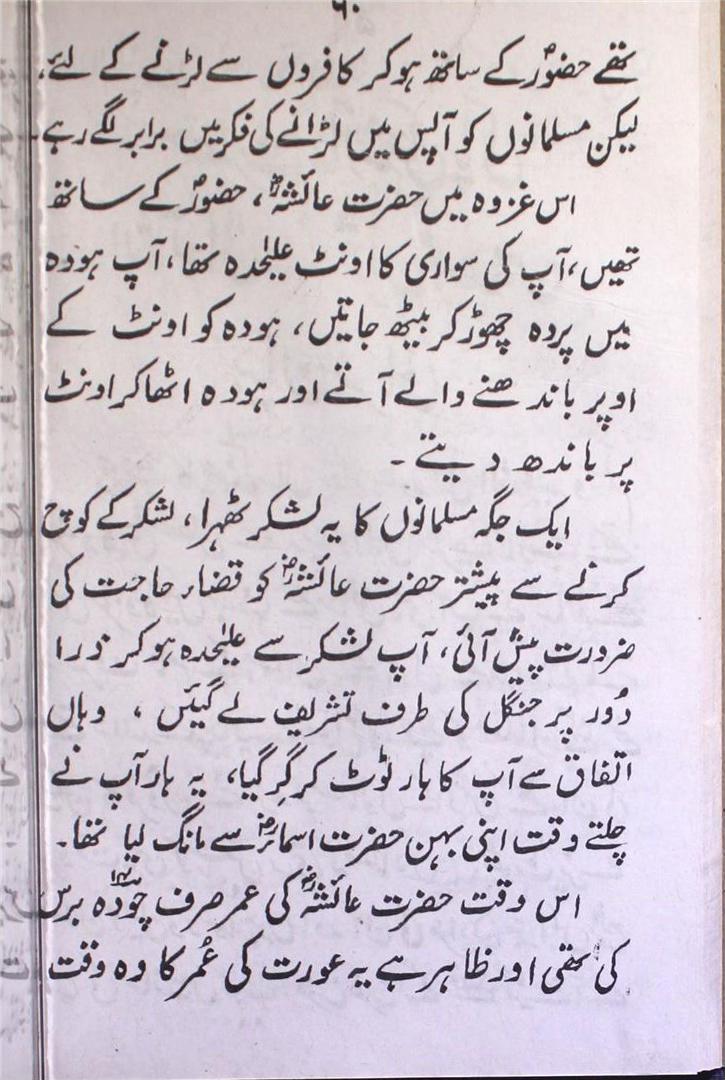 ۶۰
تھے حضورؐ کے ساتھ ہو کر کافروں سے لڑنے کے لئے،
لیکن مسلمانوں کو آپس میں لڑانے کی فکر میں برابر لگے رہے۔
اس غزوہ میں حضرت عائشہؓ، حضورؐ کے ساتھ
تھیں، آپ کی سواری کا اونٹ علیٰحدہ تھا، آپ ہودہ
میں پردہ چھوڑ کر بیٹھ جاتیں، ہودہ کو اونٹ کے
اوپر باندھنے والے آتے اور ہودہ اٹھا کر اونٹ
پر باندھ دیتے۔
ایک جگہ مسلمانوں کا یہ لشکر ٹھہرا، لشکر کے کوچ
کرنے سے پیشتر حضرت عائشہؓ کو قضاء حاجت کی
ضرورت پیش آئی، آپ لشکر سے علیٰحدہ ہو کر ذرا
دُور پر جنگل کی طرف تشریف لے گئیں، وہاں
اتفاق سے آپ کا ہار ٹوٹ کر گِر گیا، یہ ہار آپ نے
چلتے وقت اپنی بہن حضرت اسماءؓ سے مانگ لیا تھا۔
اس وقت حضرت عائشہؓ کی عمر صرف چودہ ۱۴ برس
کی تھی اور ظاہر ہے یہ عورت کی عُمر کا وہ وقت